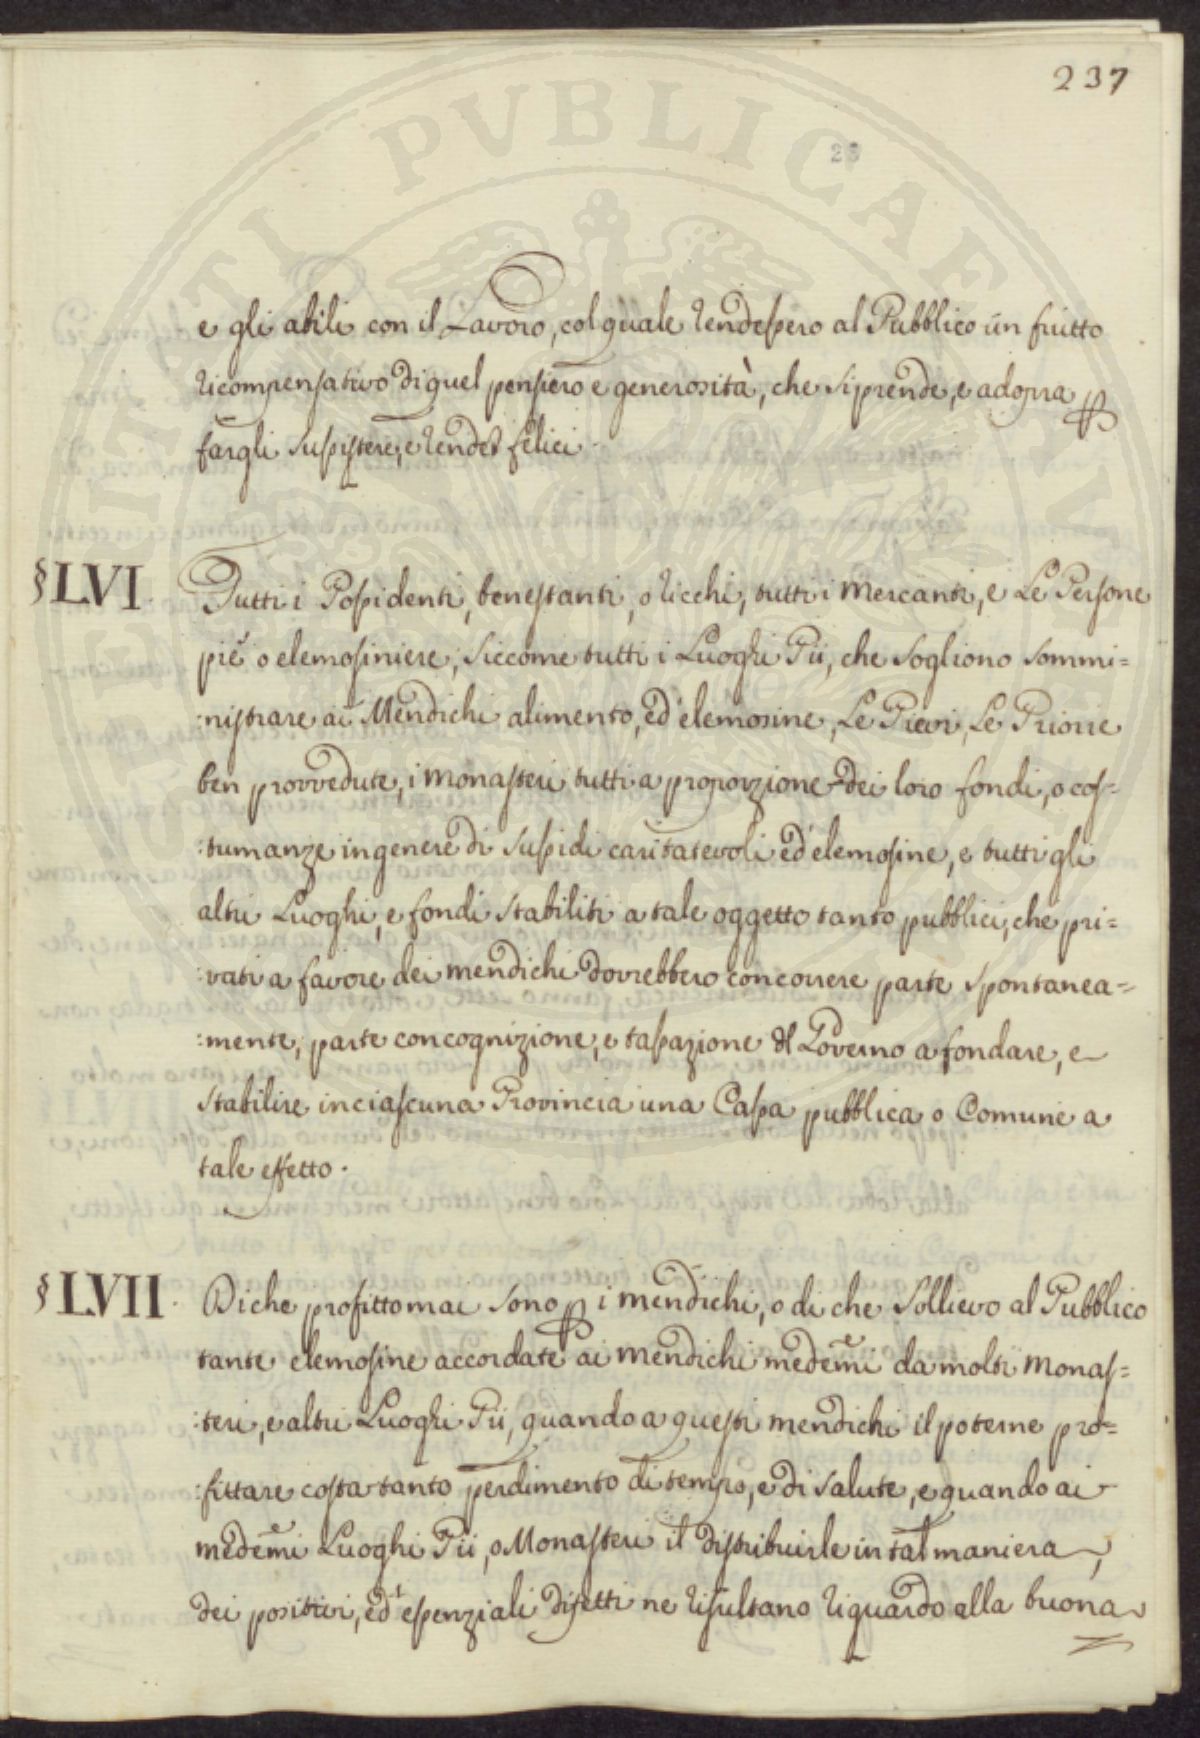 237
23
e gli abili con il Lavoro, col quale rendessero al Pubblico un frutto
ricompensativo di quel pensiero e generosità, che si prende, e adopra p
fargli sussistere, e render felici.
§LVI. Tutti i Possidenti, benestanti, o ricchi, tutti i Mercanti, e Le Persone
pie o elemosiniere, siccome tutti i Luoghi Pii, che sogliono sommi=
:nistrare ai Mendichi alimento, ed elemosine, Le Pievi, Le Priorie
ben provvedute, i Monasteri tutti a proporzione dei loro fondi, o cos=
:tumanze in genere di sussidi caritatevoli ed elemosine, e tutti gli
altri Luoghi, e fondi stabiliti a tale oggetto tanto pubblici, che pri=
:vati a favore dei mendichi dovrebbero concorrere parte spontanea=
:mente, parte con cognizione, e tassazione del Governo a fondare, e
stabilire in ciascuna Provincia una Cassa pubblica o Comune a
tale effetto.
§LVII. Di che profitto mai sono p i mendichi, o di che Sollievo al Pubblico
tante elemosine accordate ai mendichi medemi da molti Monas=
:teri, e altri Luoghi Pii, quando a questi mendichi il poterne pro=
:fittare costa tanto perdimento di tempo, e di salute, e quando ai
medemi Luoghi Pii, o Monasteri il distribuirle in tal maniera,
dei positivi, ed essenziali difetti ne risultano riguardo alla buona
PUBLICAE